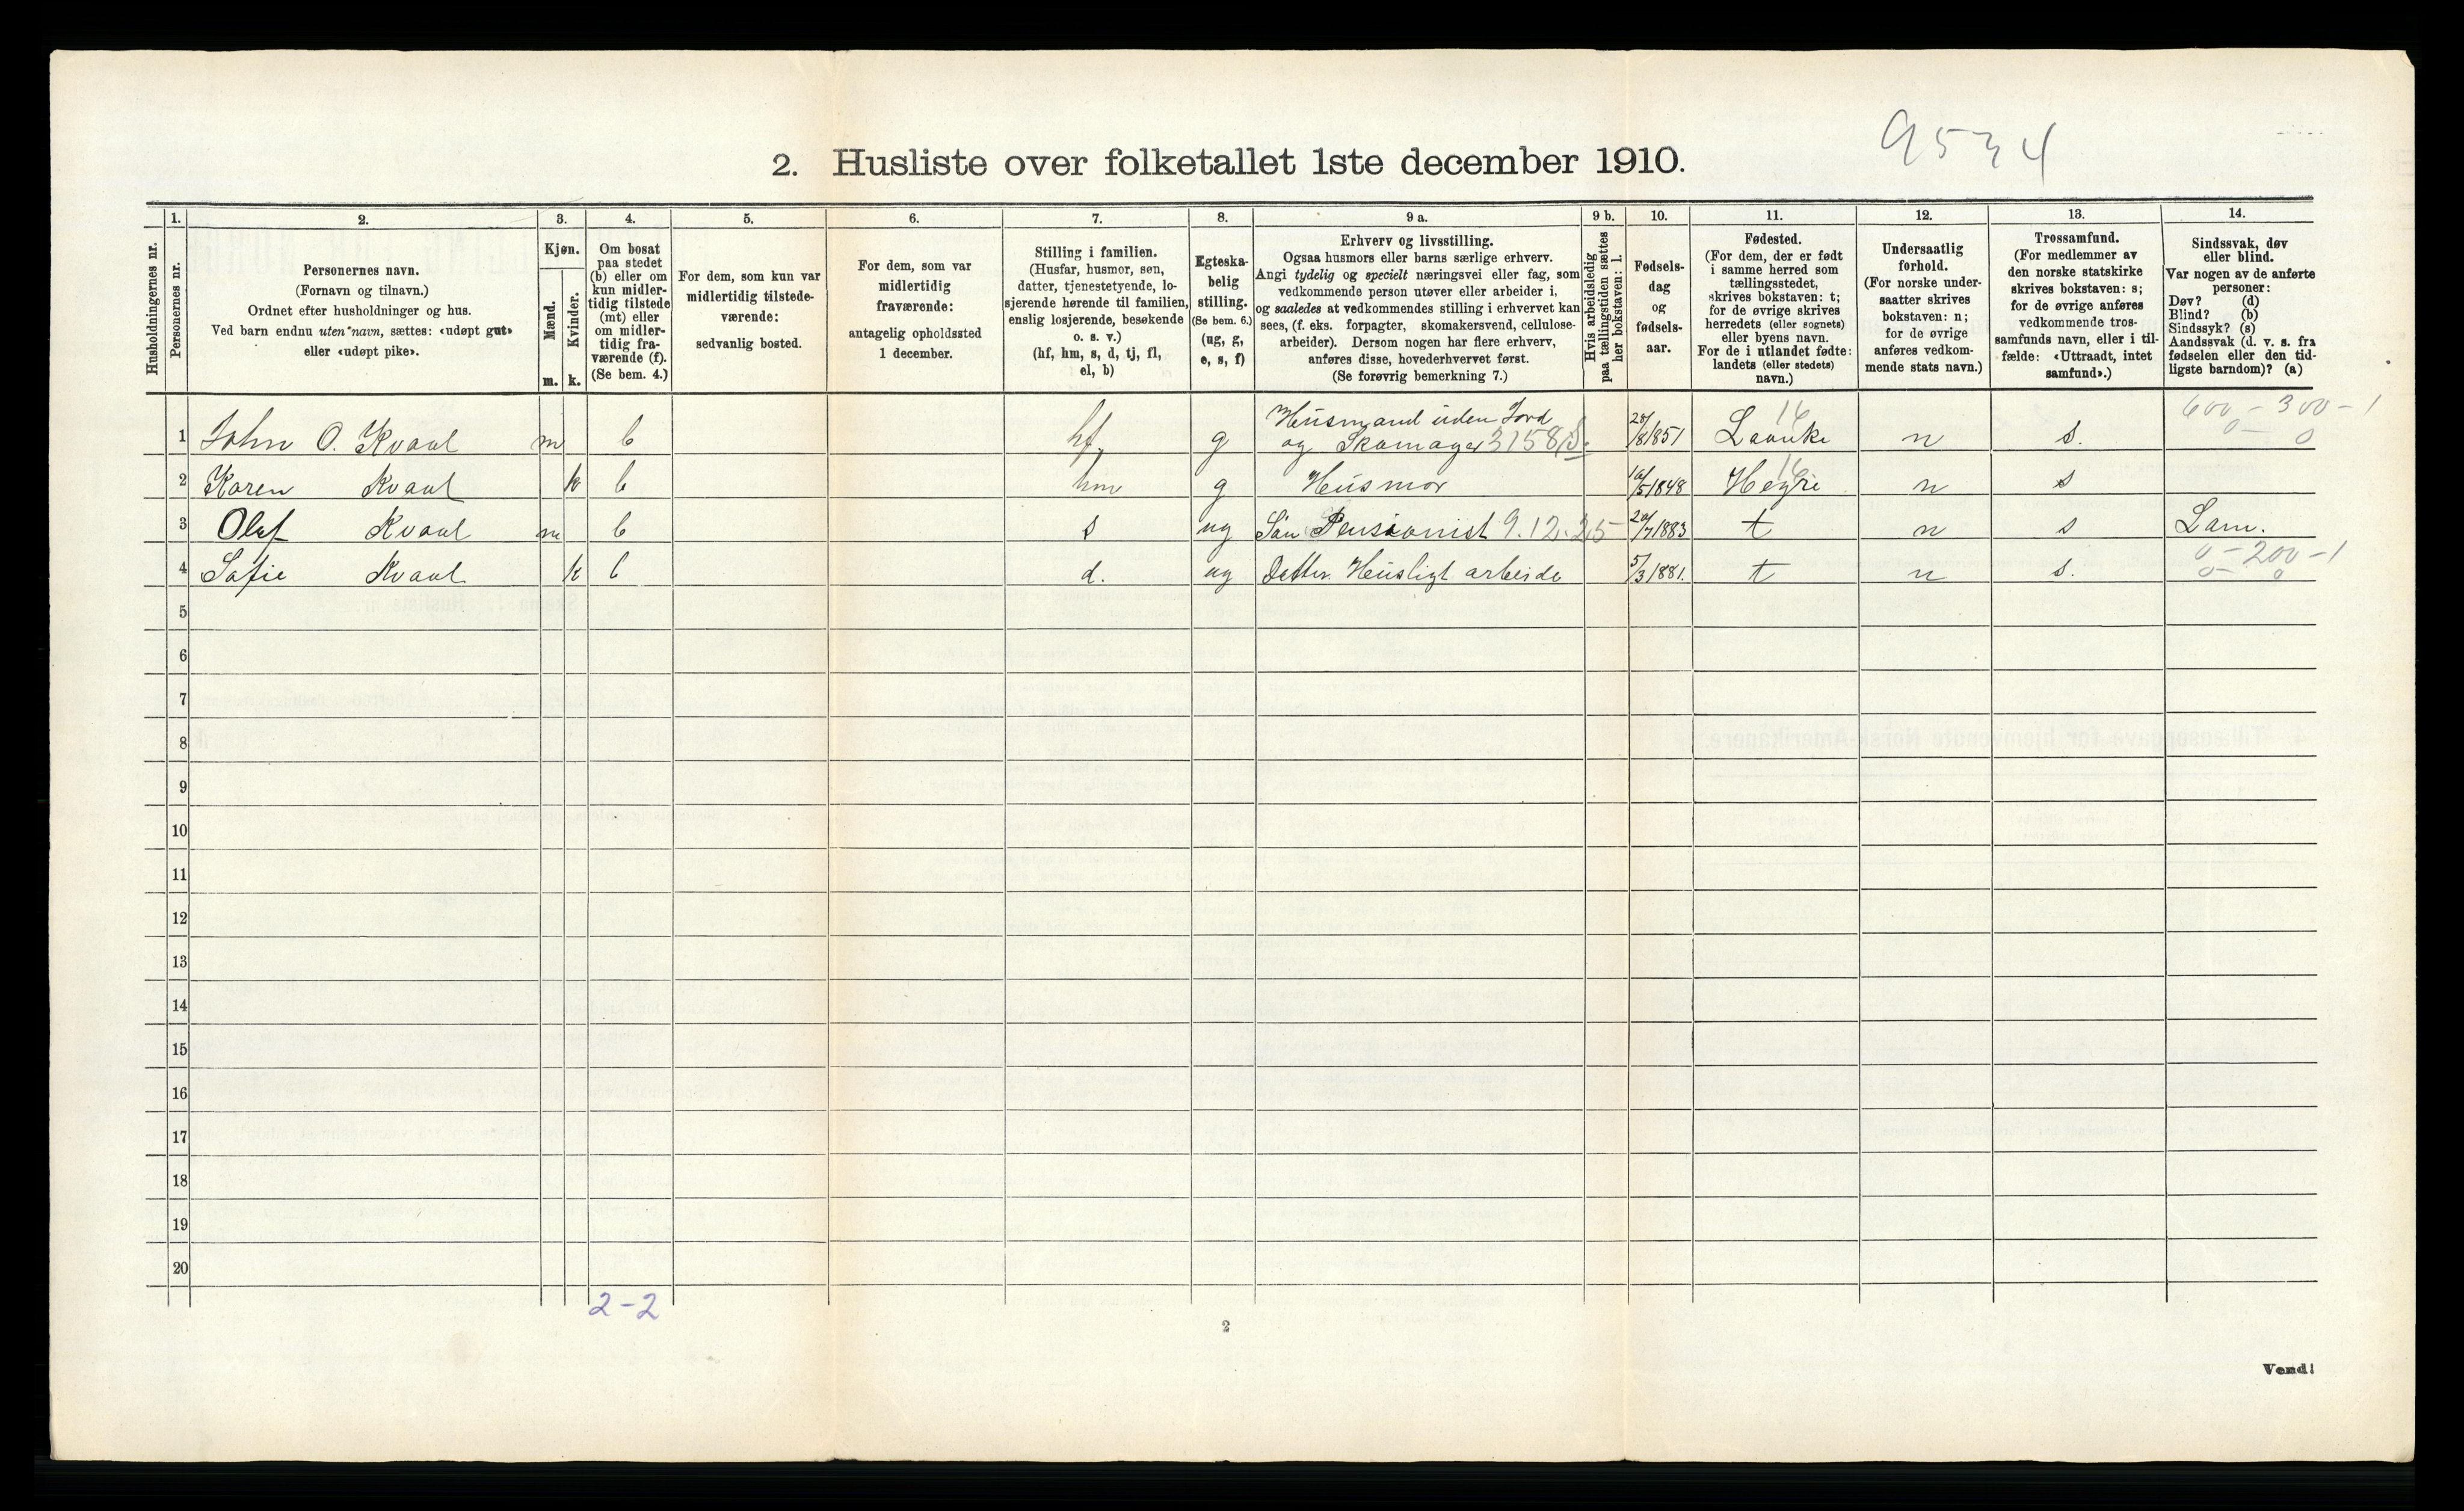 9534
2. Husliste over folketallet 1ste december 1910.
Husholdningernes nr.
1.
Personernes nr.
2.
Personernes navn.
(Fornavn og tilnavn.)
Ordnet efter husholdninger og hus.
Ved barn endnu uten navn, sættes: «udøpt gut»
eller «udøpt pike».
3.
Kjøn.
Mænd.
Kvinder.
m. k.
4.
Om bosat
paa stedet
(b) eller om
kun midler-
tidig tilstede
(mt) eller
om midler-
tidig fra-
værende (f).
(Se bem. 4.)
5.
For dem, som kun var
midlertidig tilstede-
værende:
sedvanlig bosted.
6.
For dem, som var
midlertidig
fraværende:
antagelig opholdssted
1 december.
7.
Stilling i familien.
(Husfar, husmor, søn,
datter, tjenestetyende, lo-
sjerende hørende til familien,
enslig losjerende, besøkende
o. s. v.)
(hf, hm, s, d, tj, fl,
el, b)
8.
Egteska-
belig
stilling.
(Se bem. 6.)
(ug, g,
e, s, f)
9 a.
Erhverv og livsstilling.
Ogsaa husmors eller barns særlige erhverv.
Angi tydelig og specielt næringsvei eller fag, som
vedkommende person utøver eller arbeider i,
og saaledes at vedkommendes stilling i erhvervet kan
sees, (f. eks. forpagter, skomakersvend, cellulose-
arbeider). Dersom nogen har flere erhverv,
anføres disse, hovederhvervet først.
(Se forøvrig bemerkning 7.)
9 b.
Hvis arbeidsledig
paa tællingstiden sættes
her bokstaven: l.
10.
Fødsels-
dag
og
fødsels-
aar.
11.
Fødested.
(For dem, der er født
i samme herred som
tællingsstedet,
skrives bokstaven: t;
for de øvrige skrives
herredets (eller sognets)
eller byens navn.
For de i utlandet fødte:
landets (eller stedets)
navn.)
12.
Undersaatlig
forhold.
(For norske under-
saatter skrives
bokstaven: n;
for de øvrige
anføres vedkom-
mende stats navn.)
13.
Trossamfund.
(For medlemmer av
den norske statskirke
skrives bokstaven: s;
for de øvrige anføres
vedkommende tros-
samfunds navn, eller i til-
fælde: «Uttraadt, intet
samfund».)
14.
Sindssvak, døv
eller blind.
Var nogen av de anførte
personer:
Døv? (d)
Blind? (b)
Sindssyk? (s)
Aandssvak (d. v. s. fra
fødselen eller den tid-
ligste barndom)? (a)
Husmand uden Jord 16 600 - 300 - 1
1 John O. Kvaal m b hf g og Skomager 3158 S. 28/8 1851 Laanke n s. 0 - 0
2 Karen Kvaal k b hm g Husmor 5 1848 Hegre 16 n s
3 Olaf Kvaal m b s ug Søn Pensionist 9.12.25 20/7 1883 t n s Lam.
4 Sofie Kvaal k b d. ug Datter. Husligt arbeide 5/3 1881. t n s. 0 - 200 - 1
0 - 0
5
6
7
8
9
10
11
12
13
14
15
16
17
18
19
20
2-2
2
Vend!